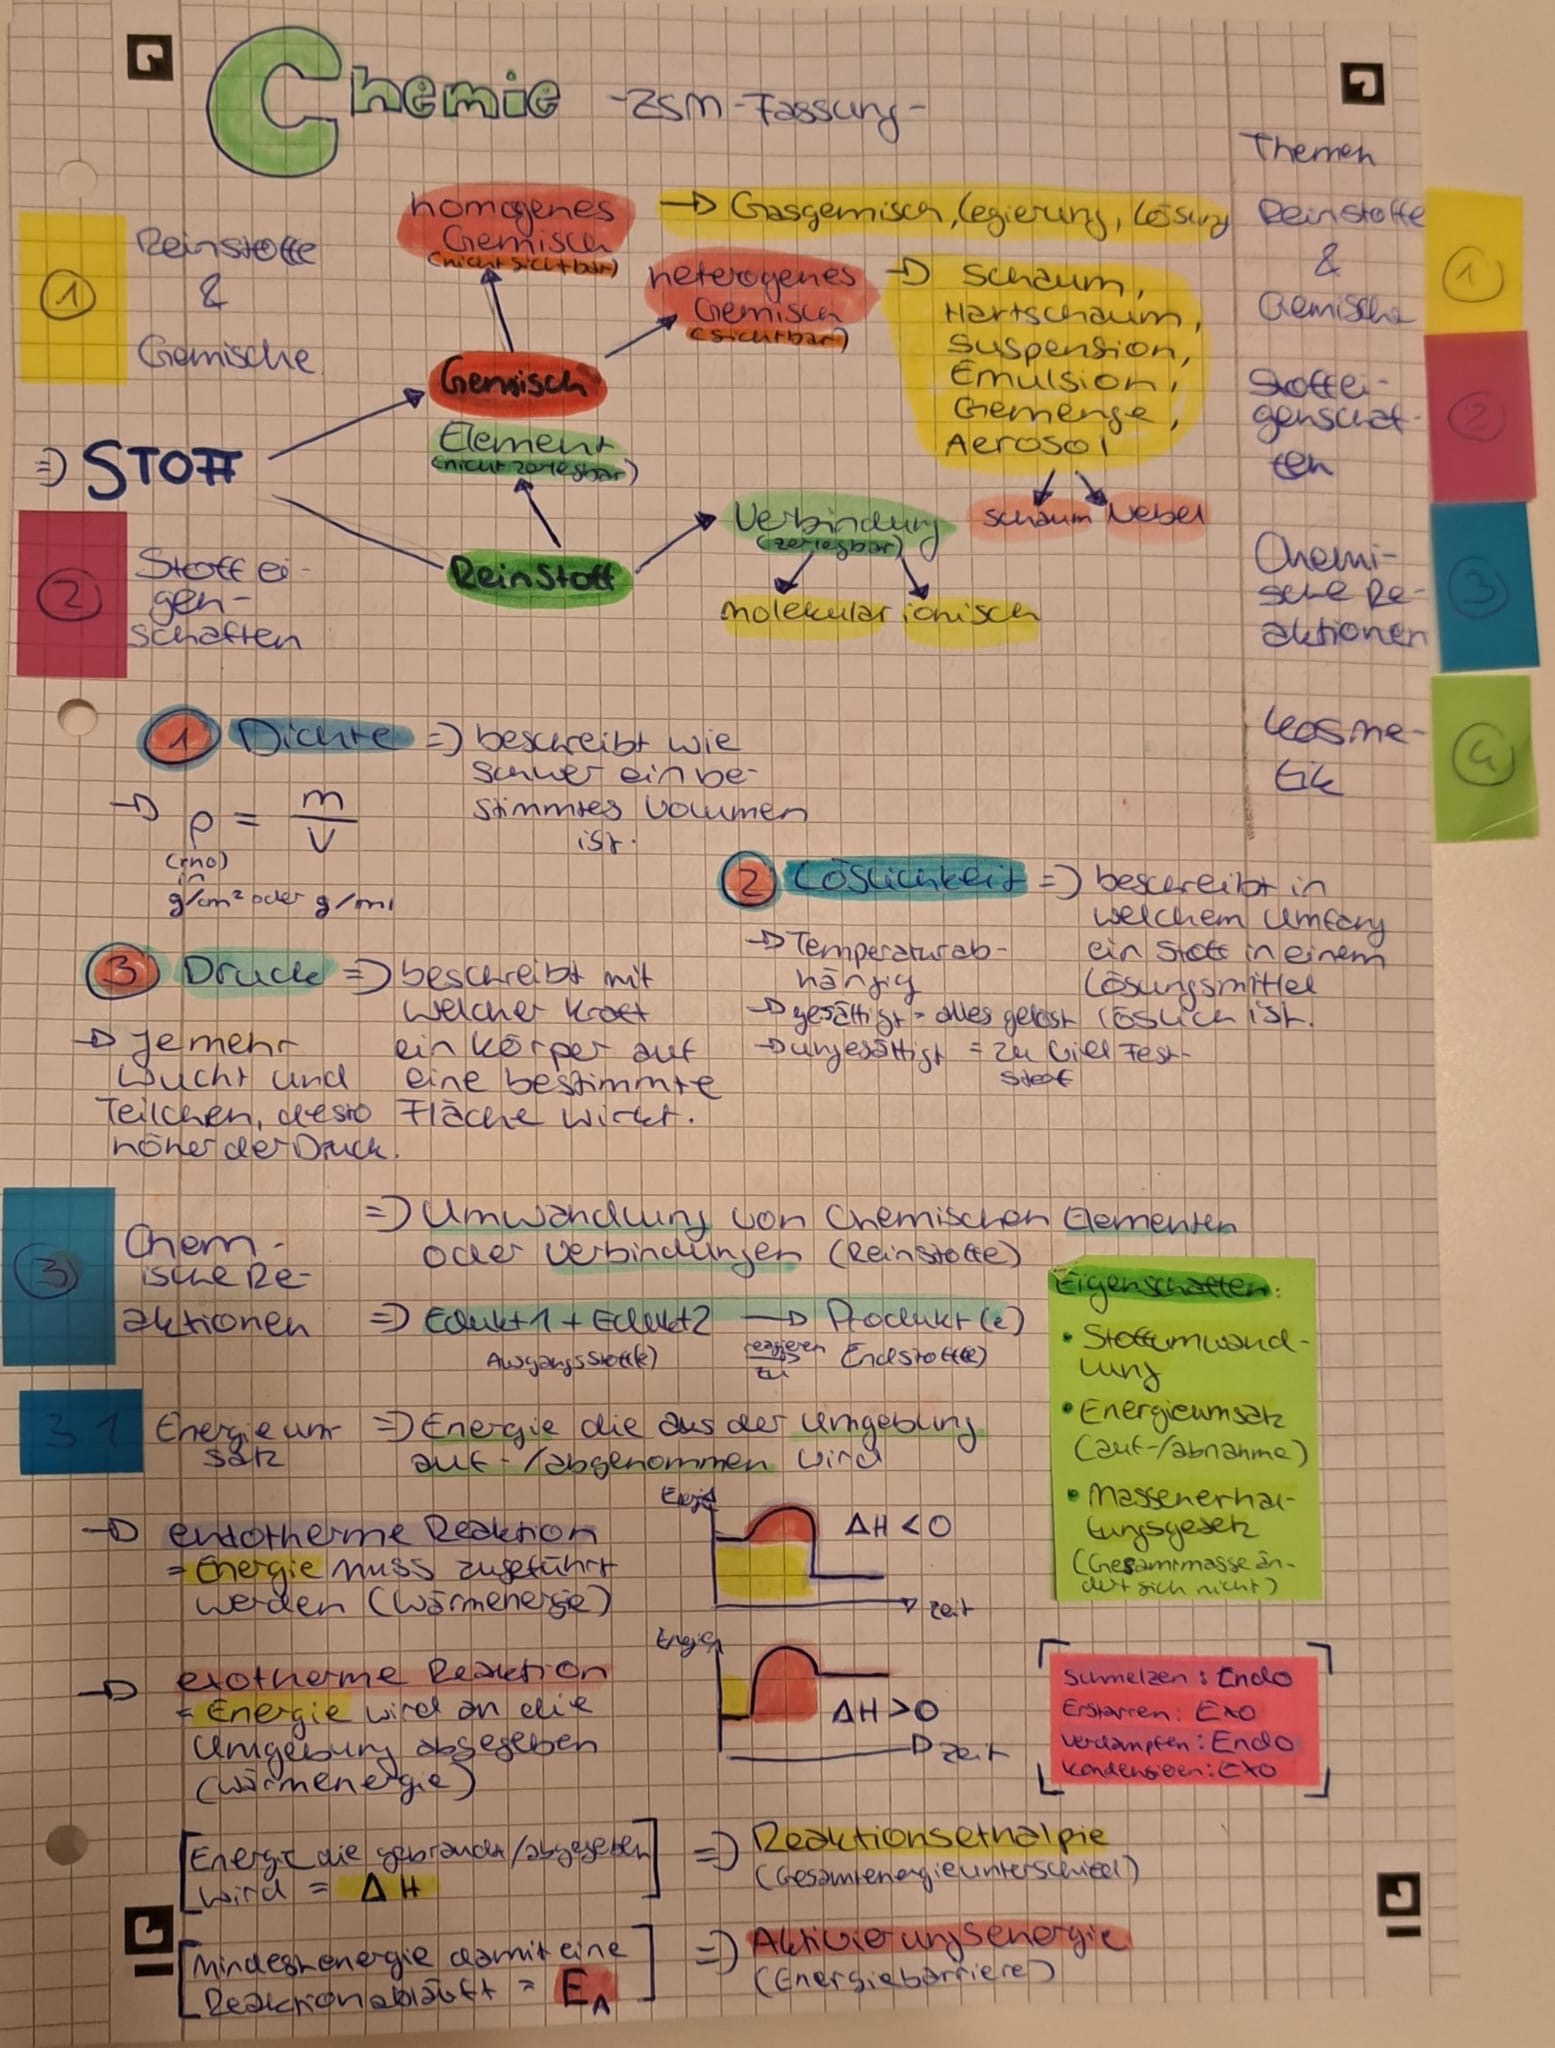 Chemie -ZSM-Fassung-
Themen
1
Reinstoffe
&
Gemische
homogenes
Gemisch
(nicht sichtbar)
→ Gasgemisch, Legierung, Lösung
heterogenes
Gemisch
(sichtbar)
→ Schaum,
Hartschaum,
Suspension,
Emulsion,
Gemenge,
Aerosol
Schaum Nebel
Gemisch
⇒ STOFF
Element
(nicht zerlegbar)
Reinstoff
Verbindung
(zerlegbar)
molekular ionisch
Reinstoffe
&
Gemische
1
Stoffei-
genschaf-
ten
2
Chemi-
sche Re-
aktionen
3
Kosme-
tik
4
2
Stoffei-
gen-
schaften
1 Dichte ⇒ beschreibt wie
schwer ein be-
stimmtes Volumen
ist.
→ ρ = m/V
(rho)
in
g/cm² oder g/ml
2 Löslichkeit ⇒ beschreibt in
welchem Umfang
ein Stoff in einem
Lösungsmittel
löslich ist.
→ Temperaturab-
hängig
→ gesättigt = alles gelöst
→ ungesättigt = zu viel Fest-
stoff
3 Druck ⇒ beschreibt mit
welcher Kraft
ein Körper auf
eine bestimmte
Fläche wirkt.
→ Je mehr
Wucht und
Teilchen, desto
höher der Druck.
3
Chem-
ische Re-
aktionen
⇒ Umwandlung von Chemischen Elementen
oder Verbindungen (Reinstoffe)
⇒ Edukt 1 + Edukt 2 → Produkt(e)
Ausgangsstoff(e) reagieren zu Endstoff(e)
Eigenschaften:
• Stoffumwand-
lung
• Energieumsatz
(auf-/abnahme)
• Massenerhal-
tungsgesetz
(Gesamtmasse än-
dert sich nicht)
3.1 Energieum-
satz
⇒ Energie die aus der Umgebung
auf-/abgenommen wird
→ endotherme Reaktion
= Energie muss zugeführt
werden (Wärmenergie)
Energie
ΔH < 0
Zeit
→ exotherme Reaktion
= Energie wird an die
Umgebung abgegeben
(Wärmenergie)
Energie
ΔH > 0
Zeit
Schmelzen: Endo
Erstarren: Exo
Verdampfen: Endo
Kondensieren: Exo
[Energie die gebraucht/abgegeben
wird = ΔH]
⇒ Reaktionsethalpie
(Gesamtenergieunterschied)
[Mindestenergie damit eine
Reaktion abläuft = E_A]
⇒ Aktivierungsenergie
(Energiebarriere)